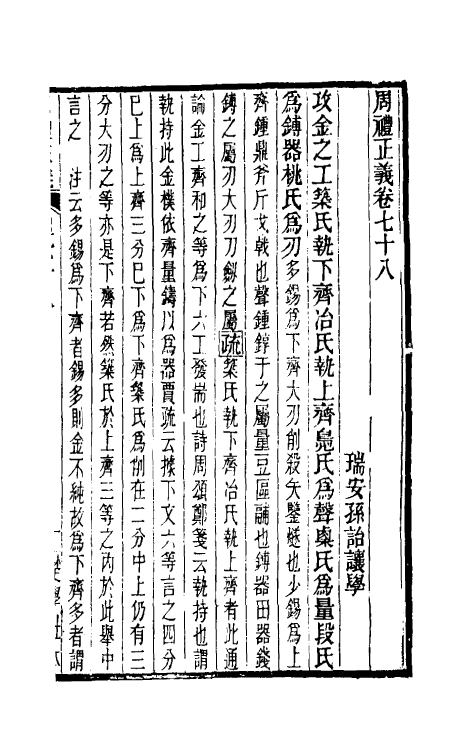 周禮正義卷七十八
瑞安孫詒讓學
攻金之工築氏執下齊冶氏執上齊鳧氏爲聲㮚氏爲量段氏
爲鎛器桃氏爲刃多錫爲下齊大刃削殺矢鑒燧也少錫爲上
齊鍾鼎斧斤戈戟也聲鍾錞于之屬量豆區鬴也鎛器田器錢
鎛之屬刃大刃刀劒之屬疏築氏執下齊冶氏執上齊者此通
論金工齊和之等爲下六工發耑也詩周頌鄭箋云執持也謂
執持此金樸依齊量鑄以爲器賈疏云據下文六等言之四分
巳上爲上齊三分巳下爲下齊築氏爲削在二分中上仍有三
分大刃之等亦是下齊若然築氏於上齊三等之內於此舉中
言之　注云多錫爲下齊者錫多則金不純故爲下齊多者謂